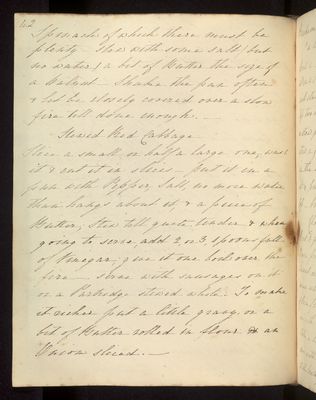 42
Spinach of which there must be
plenty. Stew with some salt, but
no water, a bit of Butter the size of
a Walnut - Shake the pan often
& let be closely covered over a slow
fire till done enough. -
Stewed Red Cabbage
Slice a small, or half a large one, wash
it & cut it in slices - put it in a
pan with Pepper, Salt, no more water
than hangs about it & a piece of
Butter, Stew till quite tender & when
going to serve, add 2 or 3 spoonsfull
of Vinegar, give it one boil over the
fire - serve with sausages on it
or a Partridge stewed whole. To make
it richer put a little gravy, or a
bit of Butter rolled in flour & an
Onion sliced. -